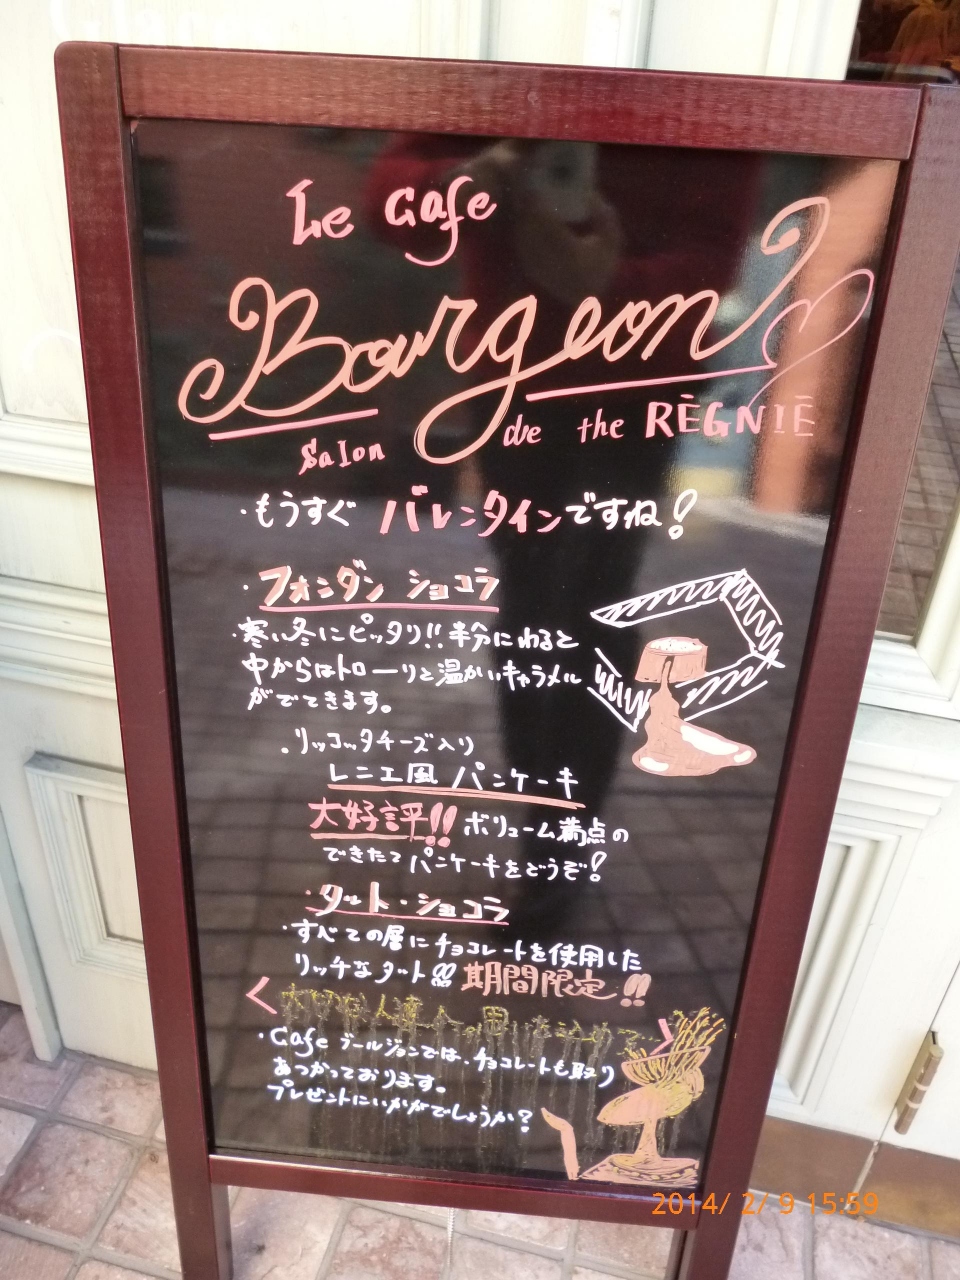 Le Cafe
Bourgeon
Salon de the RĒGNIĒ
・もうすぐ バレンタインですね!
・フォンダン ショコラ
・寒い冬にピッタリ!! 半分にわると
中からはトローリと温かいキャラメル
がでてきます。
・リッコッタチーズ入り
レニエ風 パンケーキ
大好評!! ボリューム満点の
できたてパンケーキをどうぞ!
・タルト・ショコラ
・すべての層にチョコレートを使用した
リッチなタルト!! 期間限定!!
・Cafe ブールジョンでは、チョコレートも取り
あつかっております。
プレゼントにいかがでしょうか?
2014/ 2/ 9 15:59